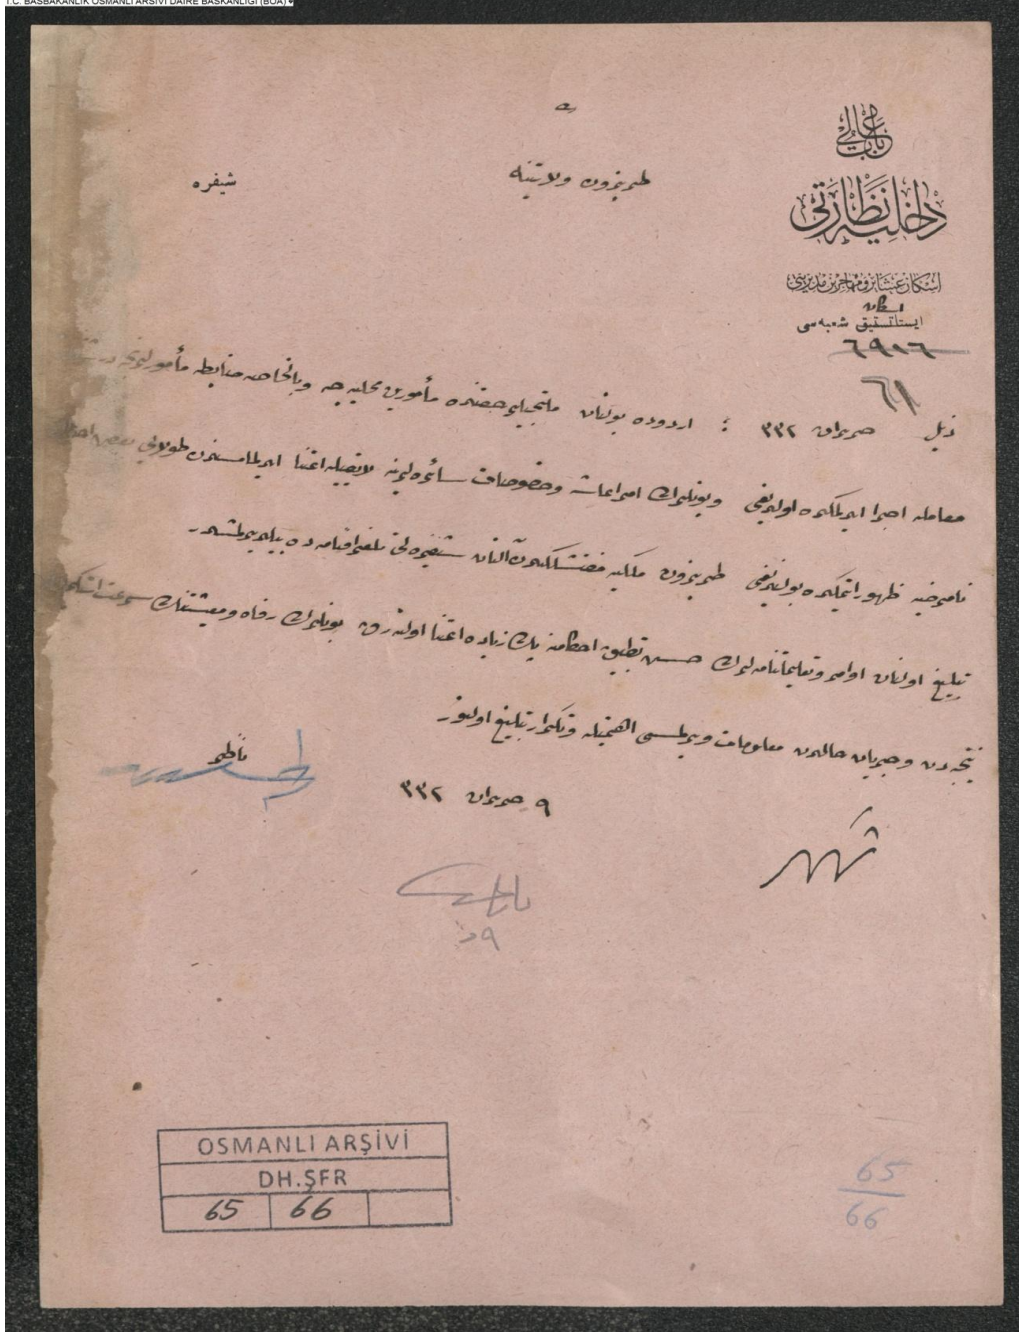 T.C. BAŞBAKANLIK OSMANLI ARŞİVİ DAİRE BAŞKANLIĞI (BOA)
باب عالی
داخلیه نظارتی
اسکان عشایر و مهاجرین مدیریتی
اسکان
شعبه‌سی
٦٩٠٦
٦١
طربزون ولایتنه
شیفره
ذیل حزیران ٣٣٢ : اردوده بولنان ملتجیلر حقنده مأمورین محلیه‌جه و بالخاصه ضابطه مأمورلرنجه
معامله اجرا ایدلمکده اولدیغی و بونلرك امر اعاشه و خصوصات سائره‌لرینه لایقیله اعتنا ایدلمامسندن طولایی بعض
نامرضیه ظهور ایتمکده بولندیغی طربزون ملکیه مفتشلکندن آلنان شیفره‌لی تلغرافنامه‌ده بیلدیرلمشدر
تبلیغ اولنان اوامر و تعلیماتنامه‌لرك حسن تطبیق احکامنه پك زیاده اعتنا اولنه‌رق بونلرك رفاه و معیشتنك سرعت
نتیجه‌دن و جریان حالدن معلومات ویرلمسی اهمیتله و تکرار تبلیغ اولنور
ناظر
٩ حزیران ٣٣٢
OSMANLI ARŞİVİ
DH.ŞFR
65 66
65
66